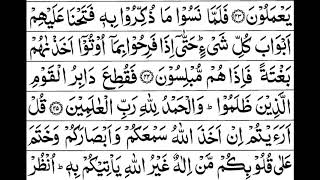 يَعْمَلُوْنَ ﴿۴۳﴾ فَلَمَّا نَسُوْا مَا ذُكِّرُوْا بِهٖ فَتَحْنَا عَلَيْهِمْ
اَبْوَابَ كُلِّ شَیْءٍ ؕ حَتّٰۤى اِذَا فَرِحُوْا بِمَاۤ اُوْتُوْۤا اَخَذْنٰهُمْ
بَغْتَةً فَاِذَا هُمْ مُّبْلِسُوْنَ ﴿۴۴﴾ فَقُطِعَ دَابِرُ الْقَوْمِ
الَّذِيْنَ ظَلَمُوْا ؕ وَالْحَمْدُ لِلّٰهِ رَبِّ الْعٰلَمِيْنَ ﴿۴۵﴾ قُلْ
اَرَءَيْتُمْ اِنْ اَخَذَ اللّٰهُ سَمْعَكُمْ وَاَبْصَارَكُمْ وَخَتَمَ
عَلٰى قُلُوْبِكُمْ مَّنْ اِلٰهٌ غَيْرُ اللّٰهِ يَاْتِيْكُمْ بِهٖ ؕ اُنْظُرْ